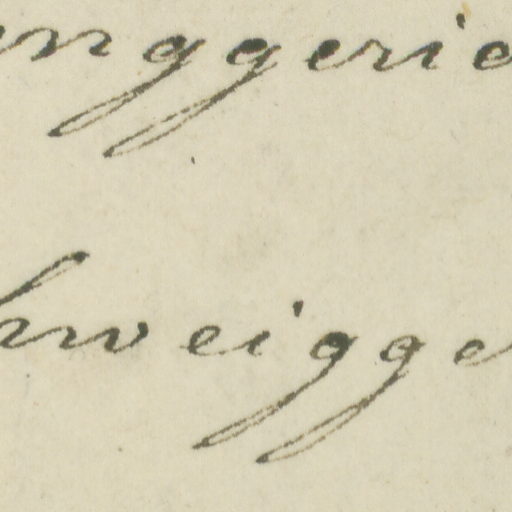 nggeric
hweigge